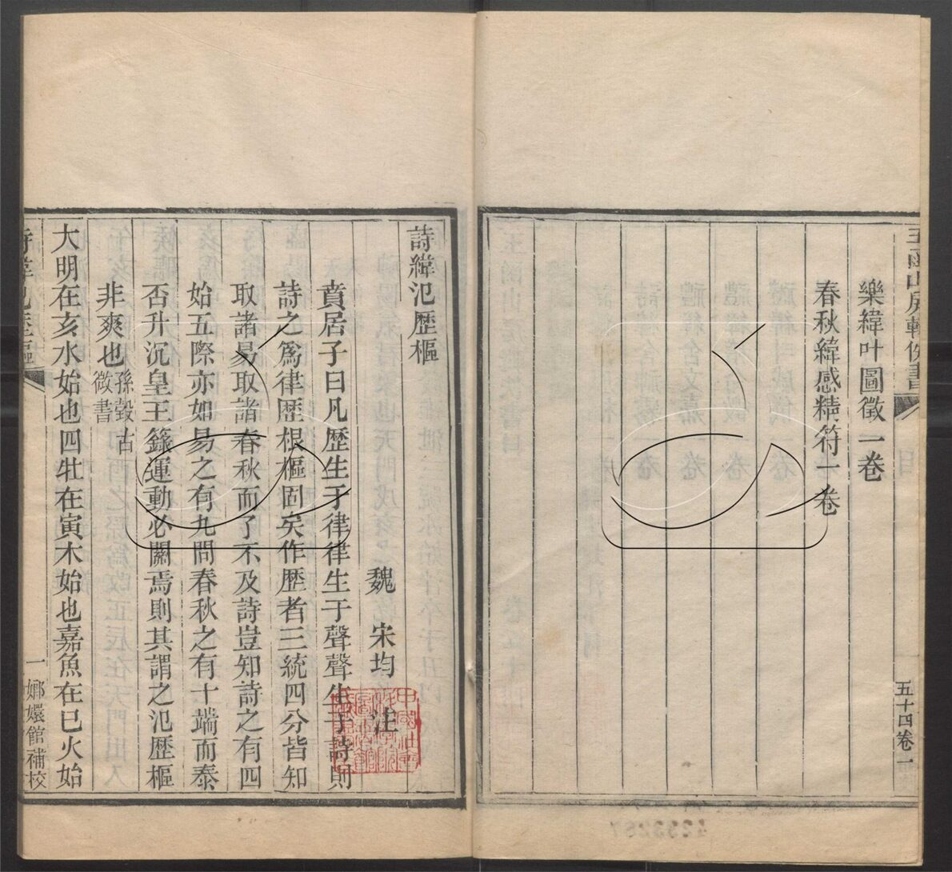 玉函山房輯佚書
五十四卷一
樂緯叶圖徵一卷
春秋緯感精符一卷
詩緯氾歷樞
魏　宋均　注
賁居子曰凡歷生于律律生于聲聲生于詩則
詩之爲律歷根樞固矣作歷者三統四分皆知
取諸易取諸春秋而了不及詩豈知詩之有四
始五際亦如易之有九問春秋之有十端而泰
否升沉皇王籙運動必關焉則其謂之氾歷樞
非爽也孫瑴古微書
大明在亥水始也四牡在寅木始也嘉魚在巳火始
詩緯氾歷樞
一
嫏嬛館補校